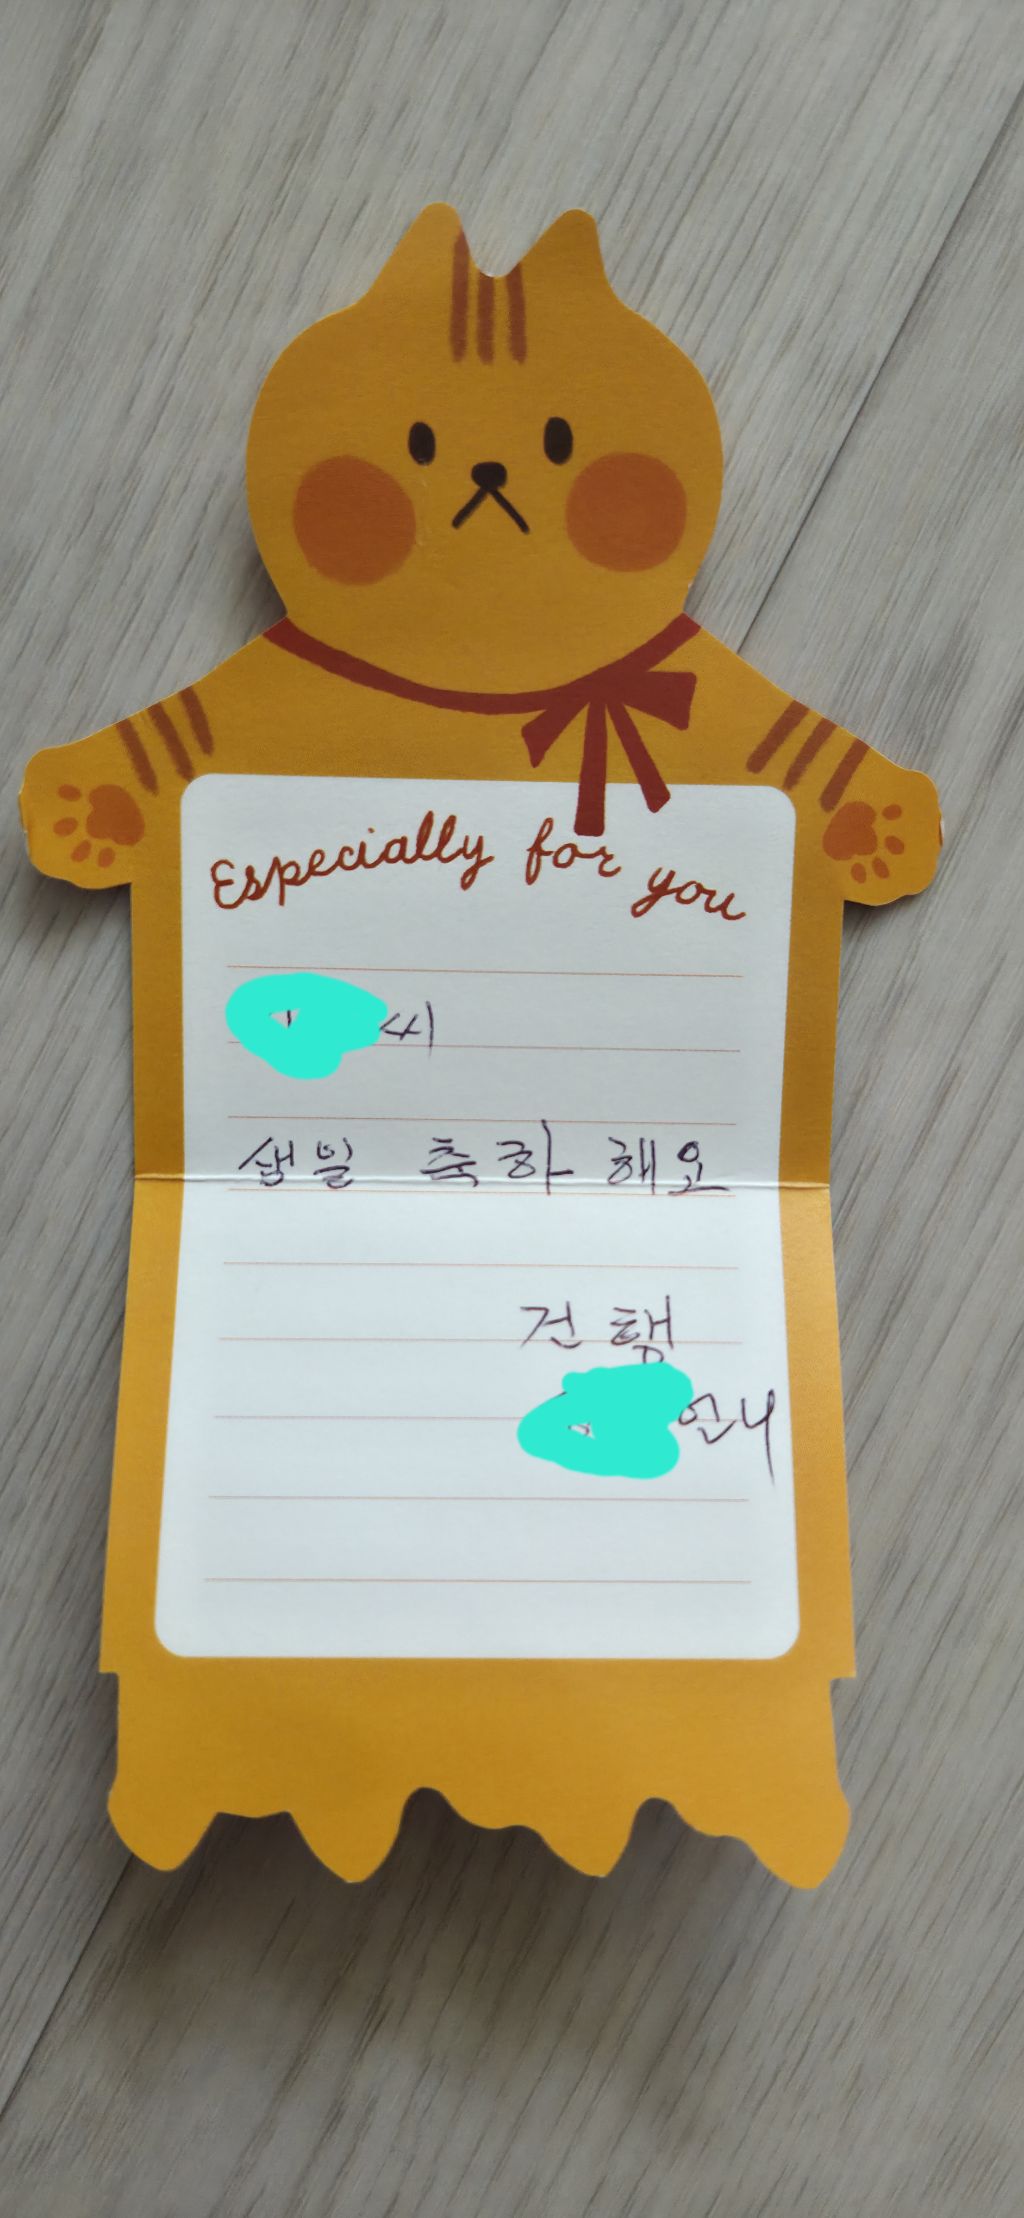 Especially for you
씨
생일 축하 해요
건행
언니